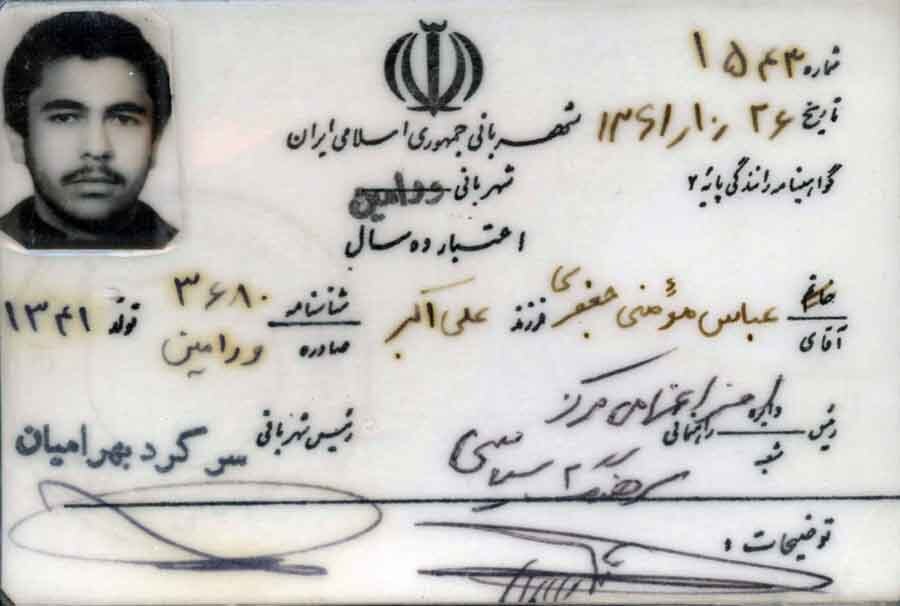 شماره ۱۵۴۳
تاریخ ۲۶ /زار/۱۳۶۱
شهربانی جمهوری اسلامی ایران
گواهینامه رانندگی پایهٔ ۲
شهربانی ورامین
اعتبار ده سال
خانم
آقای
عباس مؤمنی جعفری فرزند علی اکبر
شناسنامه ۳۶۸۰
صادره ورامین
تولد ۱۳۴۱
رئیس دایره
شعبه
راهنمائی
مرکز
رئیس شهربانی
سرگرد بهرامیان
توضیحات :